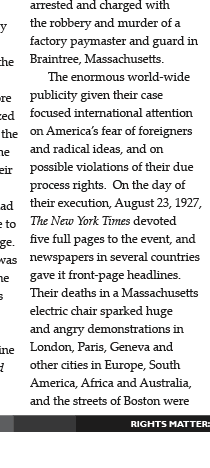 arrested and charged with
the robbery and murder of a
factory paymaster and guard in
Braintree, Massachusetts.
The enormous world-wide
publicity given their case
focused international attention
on America's fear of foreigners
and radical ideas, and on
possible violations of their due
process rights.  On the day of
their execution, August 23, 1927,
The New York Times devoted
five full pages to the event, and
newspapers in several countries
gave it front-page headlines.
Their deaths in a Massachusetts
electric chair sparked huge
and angry demonstrations in
London, Paris, Geneva and
other cities in Europe, South
America, Africa and Australia,
and the streets of Boston were
RIGHTS MATTER: